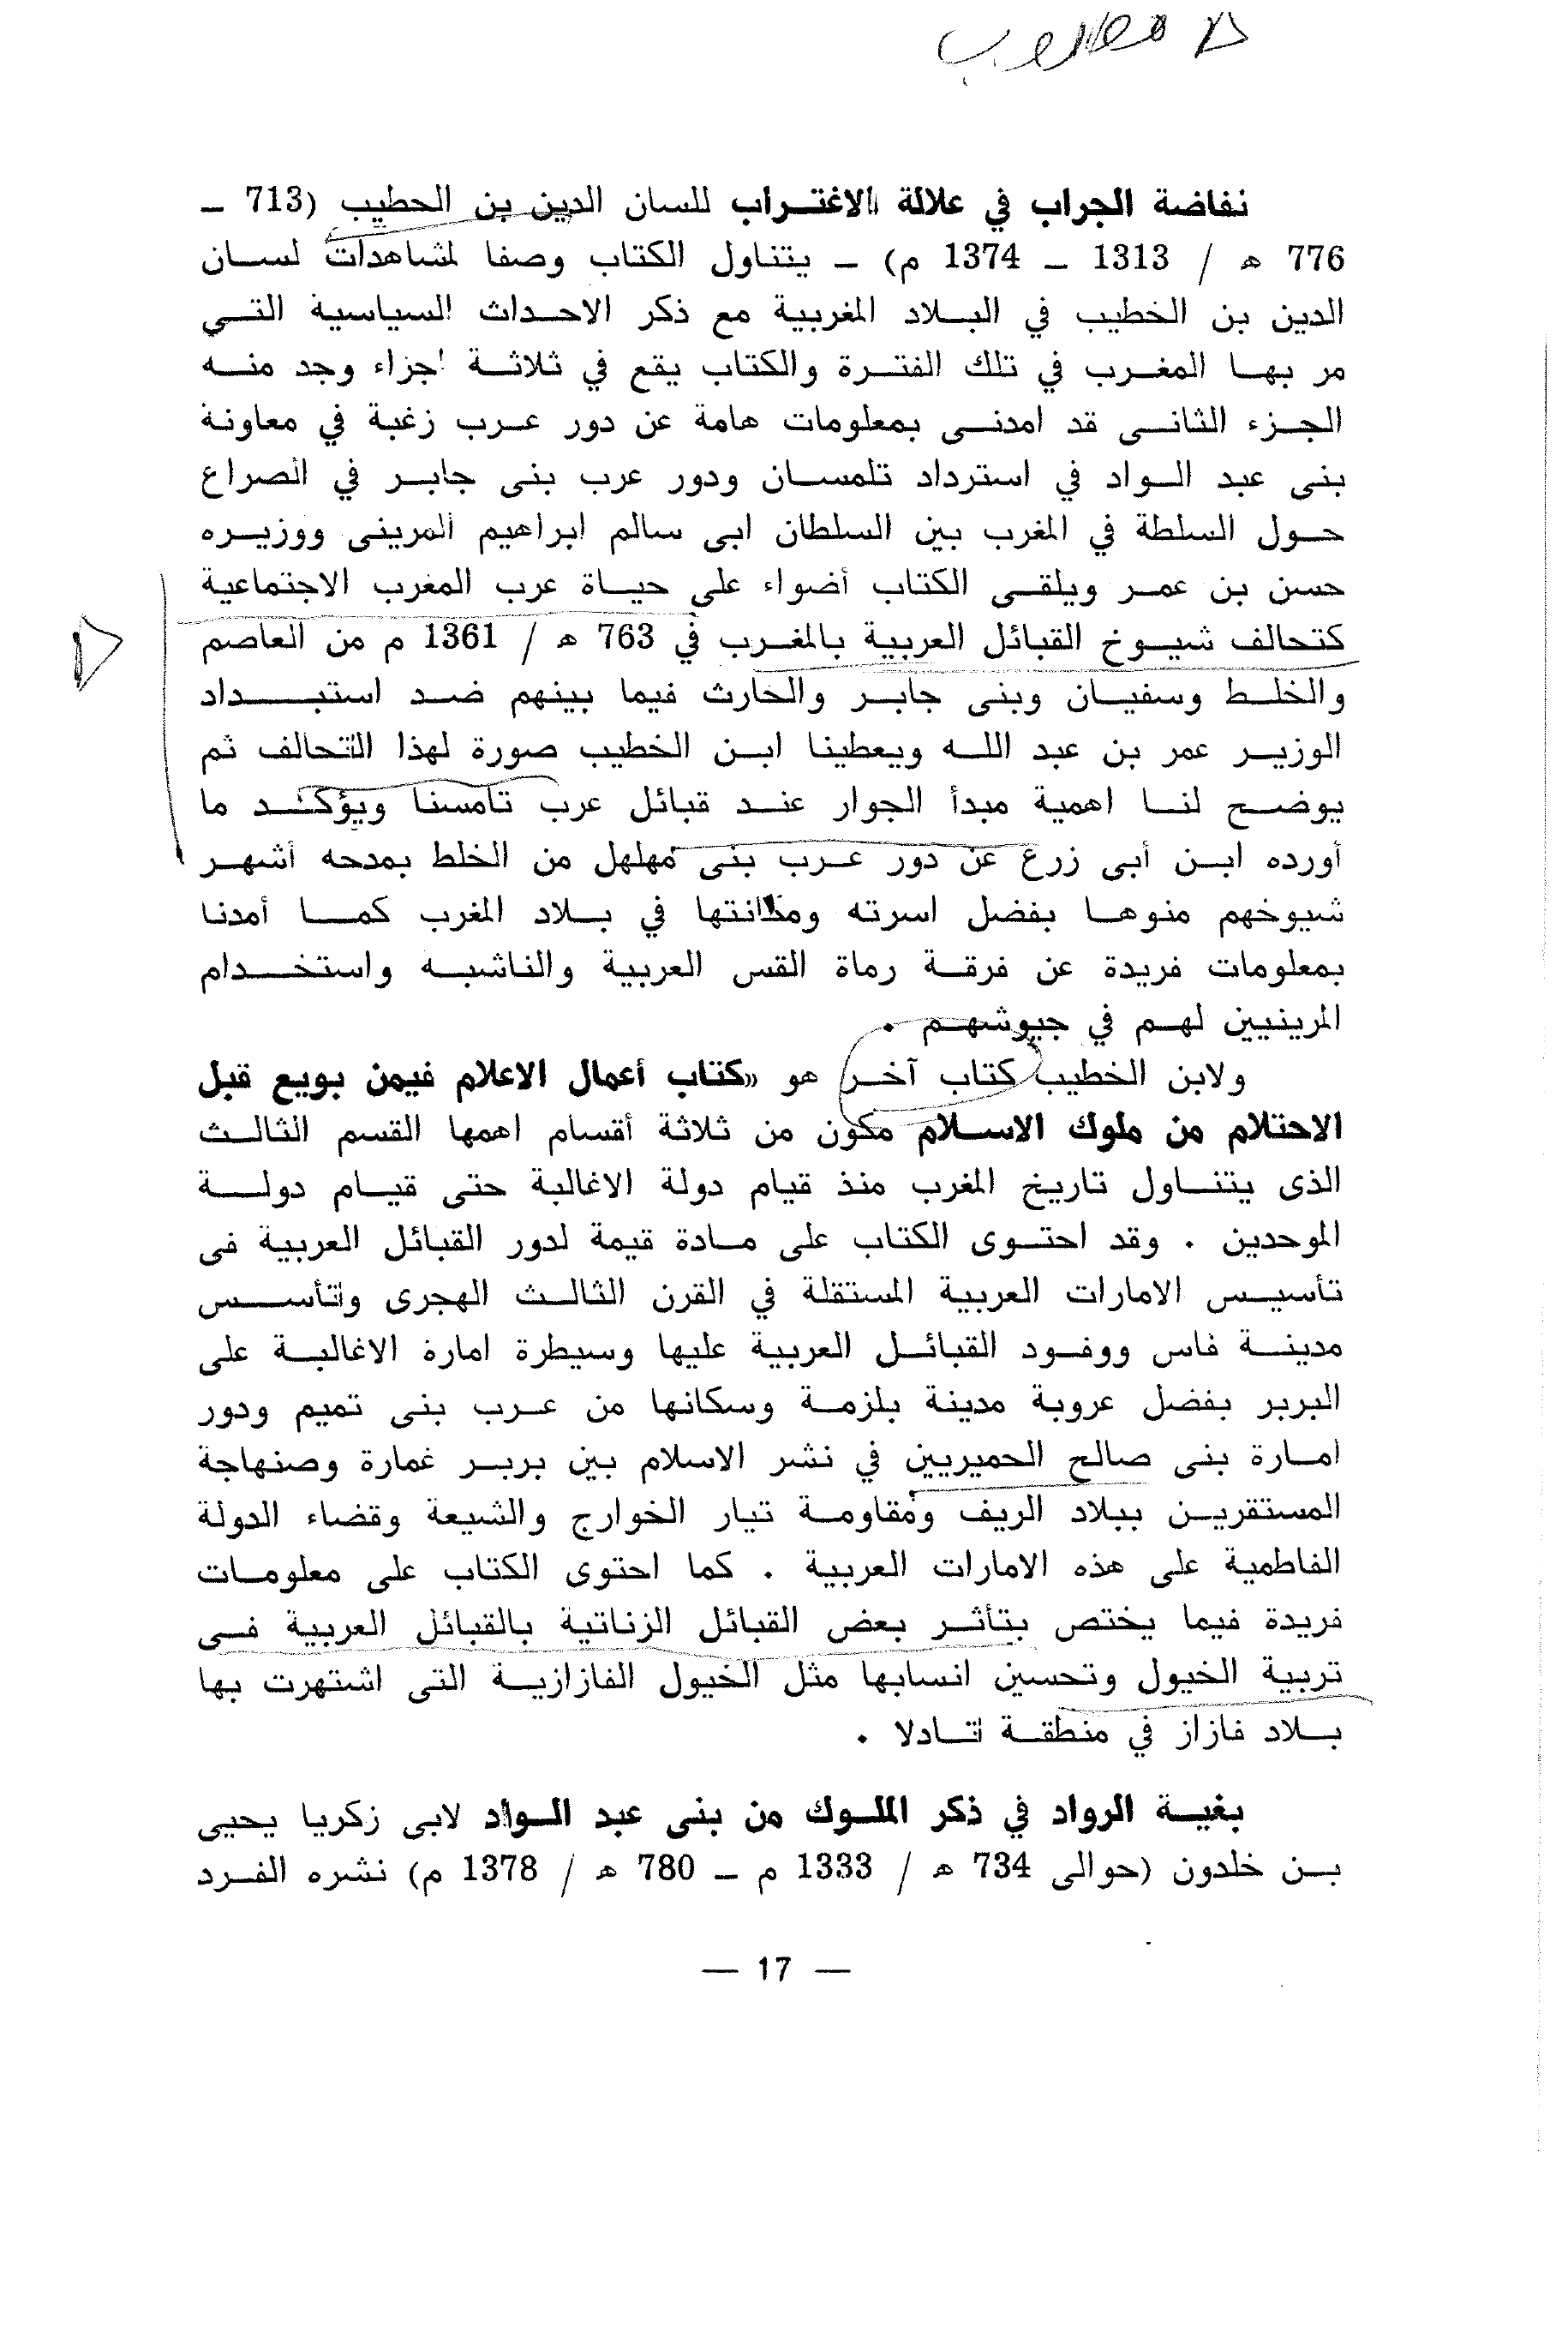 مطلوب
نفاضة الجراب في علالة الاغتراب للسان الدين بن الحطيب (713 ـ
776 ه / 1313 ـ 1374 م) ـ يتناول الكتاب وصفا لمشاهدات لسان
الدين بن الخطيب في البلاد المغربية مع ذكر الاحداث السياسية التي
مر بها المغرب في تلك الفترة والكتاب يقع في ثلاثة اجزاء وجد منه
الجزء الثانى قد امدنى بمعلومات هامة عن دور عرب زغبة في معاونة
بنى عبد الواد في استرداد تلمسان ودور عرب بنى جابر في الصراع
حول السلطة في المغرب بين السلطان ابى سالم ابراهيم المرينى ووزيره
حسن بن عمر ويلقى الكتاب أضواء على حياة عرب المغرب الاجتماعية
كتحالف شيوخ القبائل العربية بالمغرب في 763 ه / 1361 م من العاصم
والخلط وسفيان وبنى جابر والحارث فيما بينهم ضد استبداد
الوزير عمر بن عبد الله ويعطينا ابن الخطيب صورة لهذا التحالف ثم
يوضح لنا اهمية مبدأ الجوار عند قبائل عرب تامسنا ويؤكد ما
أورده ابن أبى زرع عن دور عرب بنى مهلهل من الخلط بمدحه أشهر
شيوخهم منوها بفضل اسرته ومكانتها في بلاد المغرب كما أمدنا
بمعلومات فريدة عن فرقة رماة القس العربية والناشبه واستخدام
المرينيين لهم في جيوشهم .
ولابن الخطيب كتاب آخر هو «كتاب أعمال الاعلام فيمن بويع قبل
الاحتلام من ملوك الاسلام مكون من ثلاثة أقسام اهمها القسم الثالث
الذى يتناول تاريخ المغرب منذ قيام دولة الاغالبة حتى قيام دولة
الموحدين . وقد احتوى الكتاب على مادة قيمة لدور القبائل العربية فى
تأسيس الامارات العربية المستقلة في القرن الثالث الهجرى وتأسس
مدينة فاس ووفود القبائل العربية عليها وسيطرة امارة الاغالبة على
البربر بفضل عروبة مدينة بلزمة وسكانها من عرب بنى تميم ودور
امارة بنى صالح الحميريين في نشر الاسلام بين بربر غمارة وصنهاجة
المستقرين ببلاد الريف ومقاومة تيار الخوارج والشيعة وقضاء الدولة
الفاطمية على هذه الامارات العربية . كما احتوى الكتاب على معلومات
فريدة فيما يختص بتأثر بعض القبائل الزناتية بالقبائل العربية فى
تربية الخيول وتحسين انسابها مثل الخيول الفازازية التى اشتهرت بها
بلاد فازاز في منطقة تادلا .
بغية الرواد في ذكر الملوك من بنى عبد الواد لابى زكريا يحيى
بن خلدون (حوالى 734 ه / 1333 م ـ 780 ه / 1378 م) نشره الفرد
— 17 —